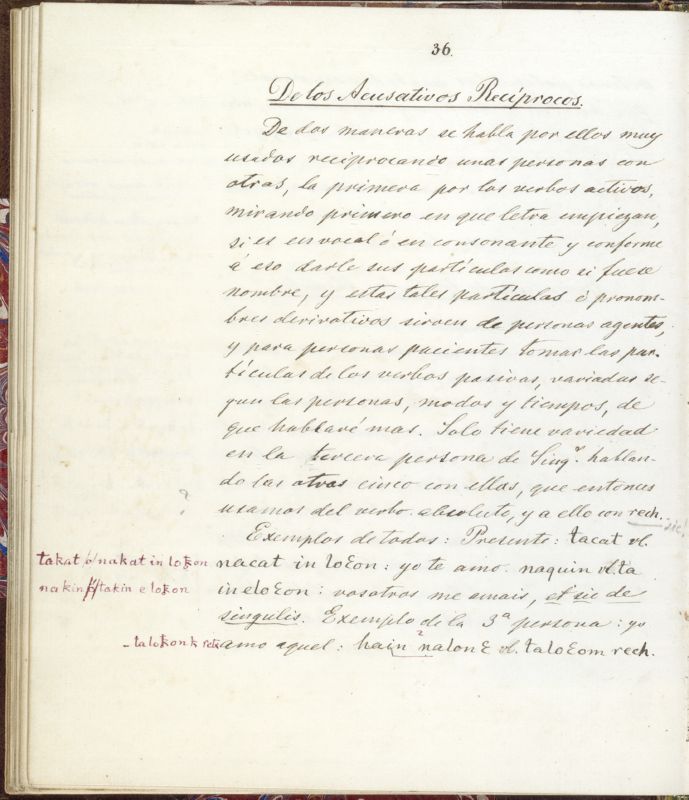 36.
De los Acusativos Recíprocos.
De dos maneras se habla por ellos muy
usados reciprocando unas personas con
otras, la primera por los verbos activos,
mirando primero en que letra empiezan,
si es en vocal ó en consonante y conforme
á eso darle sus partículas como si fuese
nombre, y estas tales partículas ó pronom-
bres derivativos sirven de personas agentes,
y para personas pacientes tomar las par-
tículas de los verbos pasivos, variadas se-
gun las personas, modos y tiempos, de
que hablaré mas. Solo tiene variedad
en la tercera persona de Singr. hablan-
do las otras cinco con ellas, que entonces
?
usamos del verbo absoluto, y a ello con rech.
sic.
Exemplos de todas: Presente: tacat vl.
takat ó nakat in loꝁon
nacat in loƐon: yo te amo. naquin vl. ta
nakin ó takin e lokon
in eloƐon: vosotros me amais, et sic de
singulis. Exemplo de la 3ª persona: yo
- talokonk rech
amo aquel: hain ? nalonƐ vl. taloƐom rech.